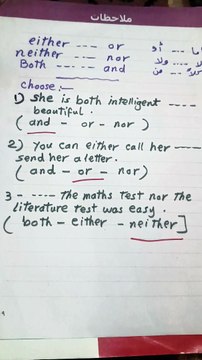 ملاحظات
either --- or
neither --- nor
Both --- and
choose:-
1) she is both intelligent ----
beautiful.
( and - or - nor )
2) You can either call her ----
send her a letter.
( and - or - nor )
3 - ---- The maths Test nor The
literature test was easy.
( both - either - neither ]